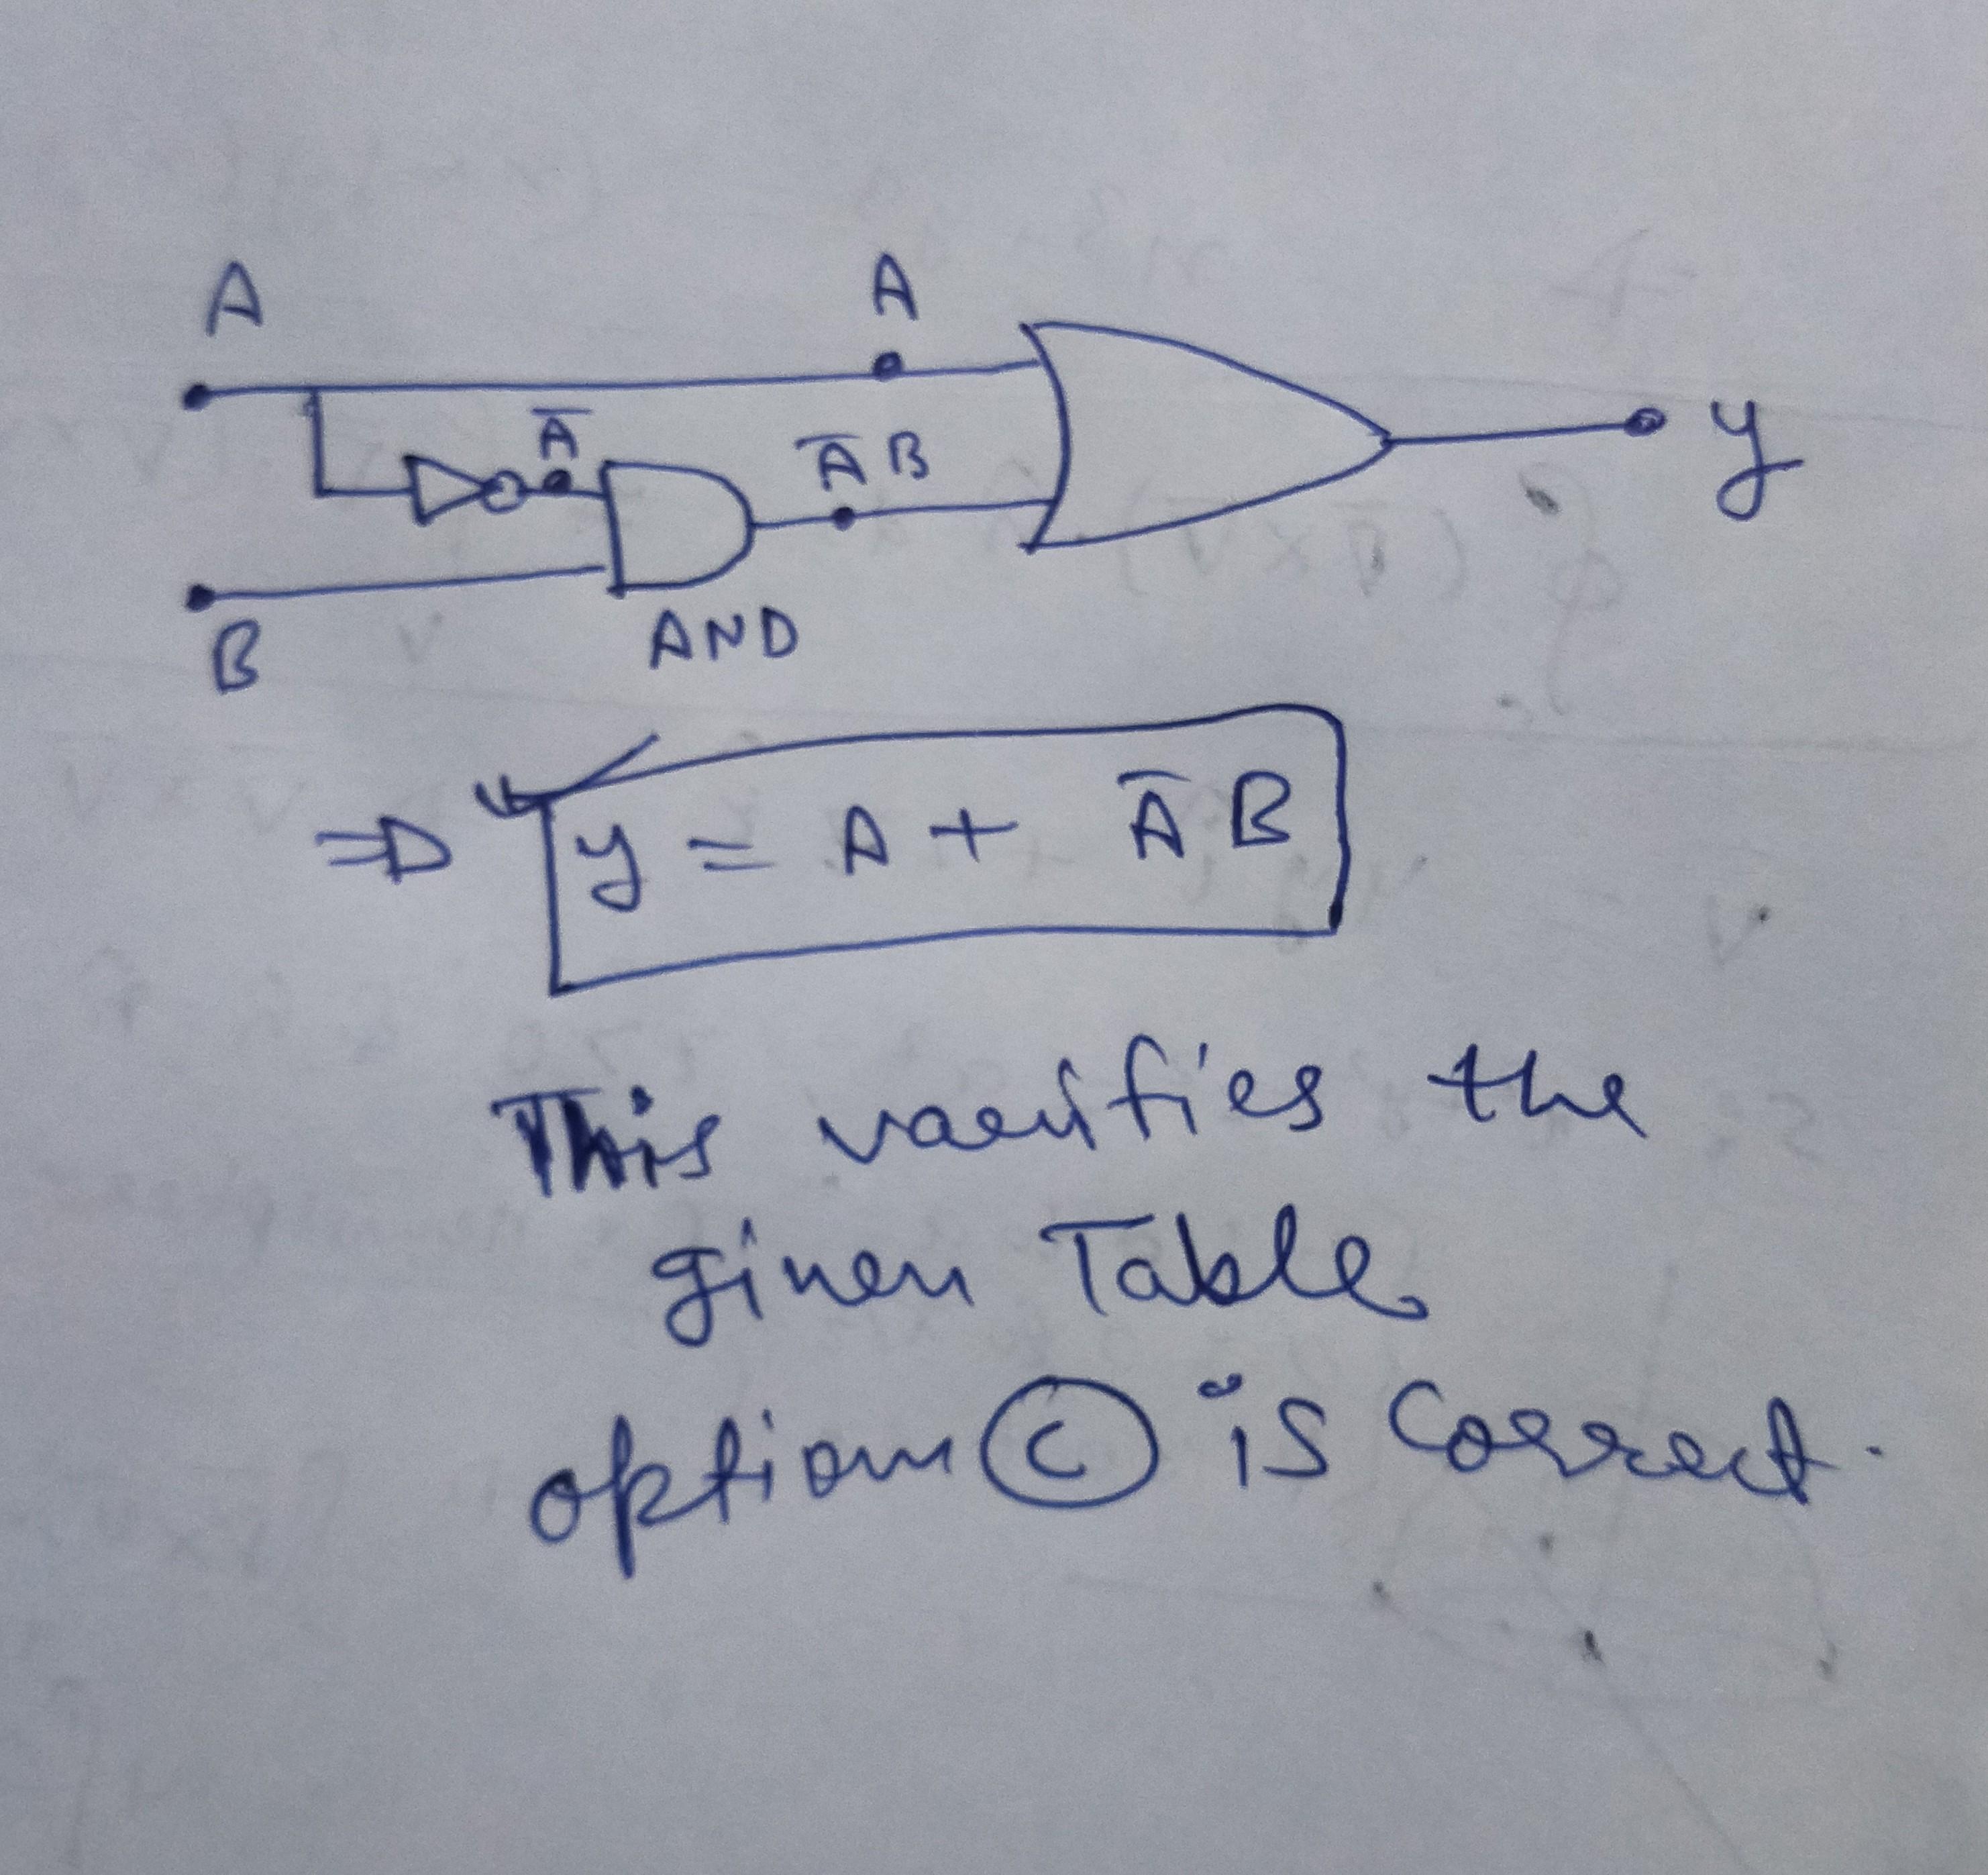 A
A
Ā
ĀB
y
B
AND
⇒ y = A + ĀB
This varifies the
given Table
option (C) is correct.